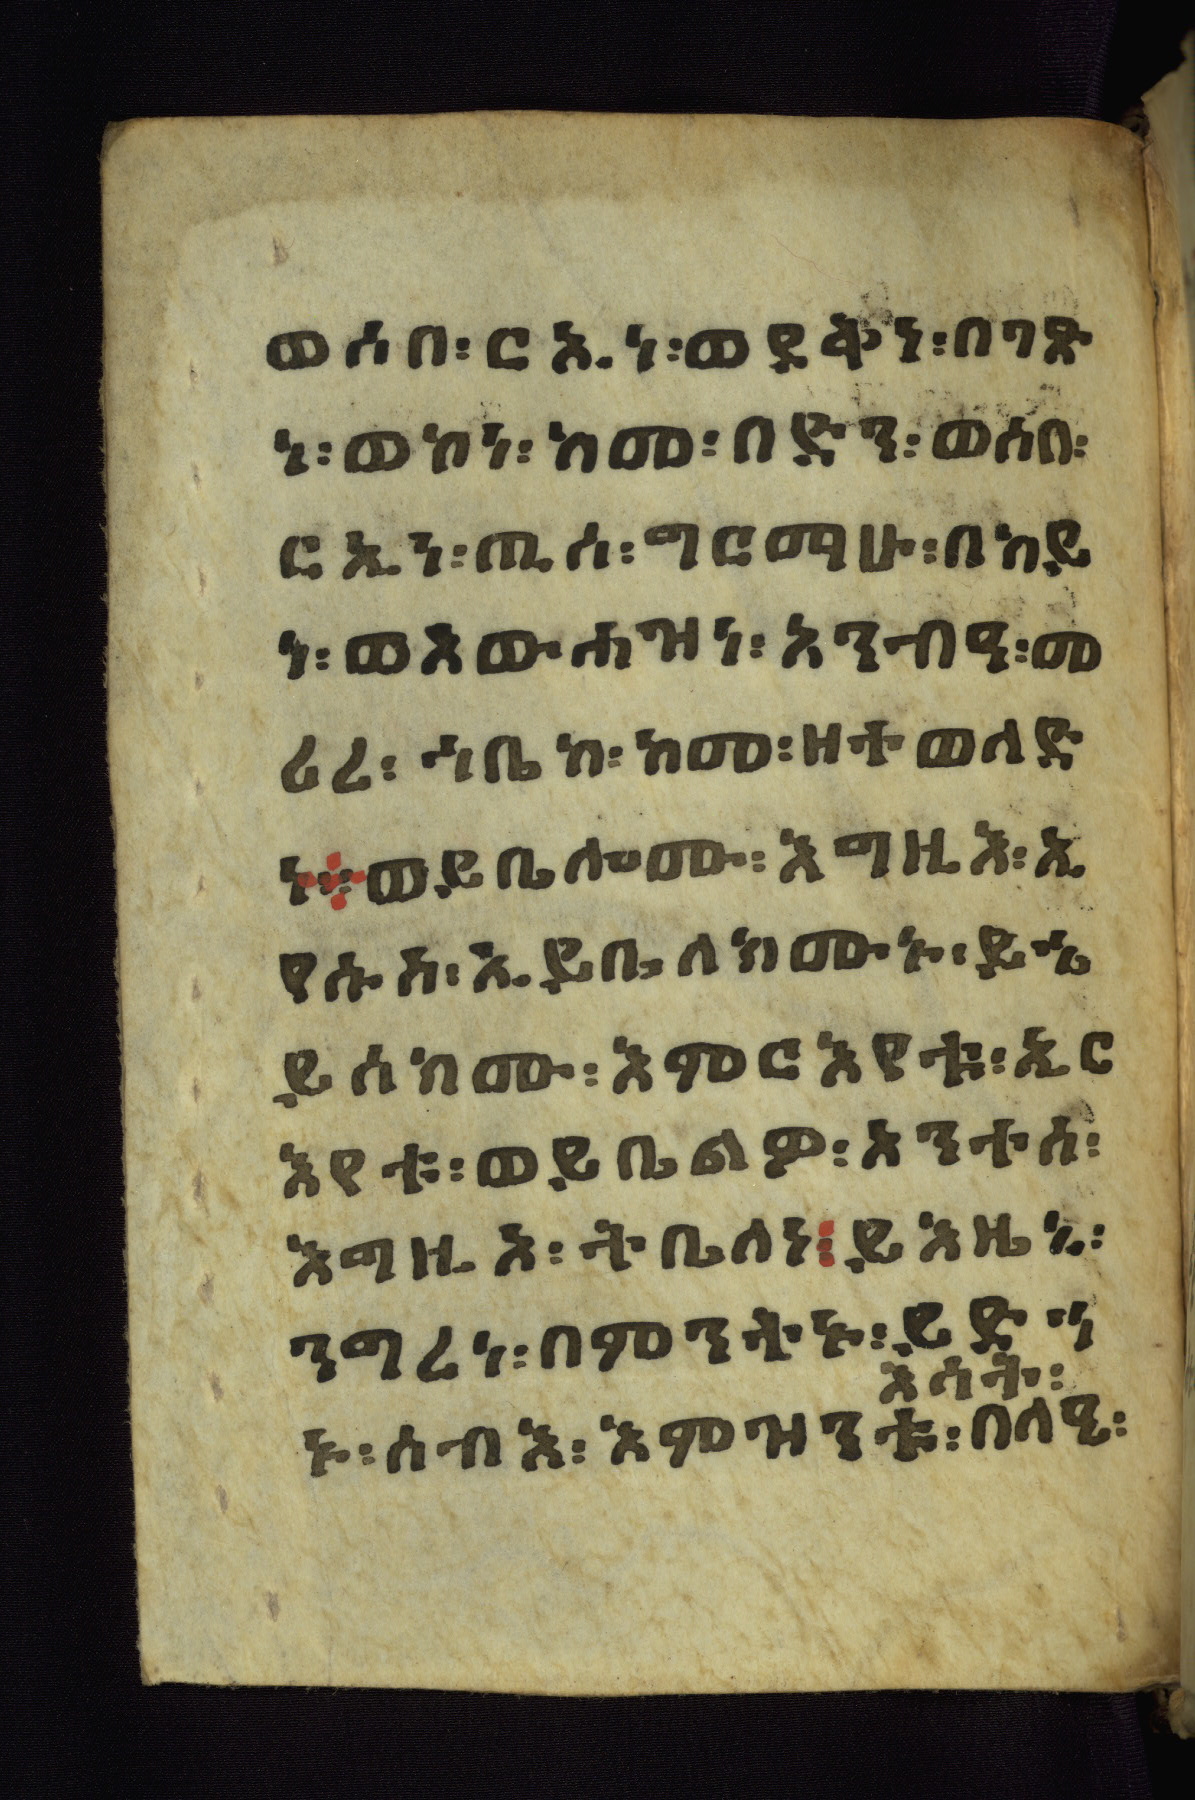 ወሶበ፡ ርኢነ፡ ወደቅነ፡ በገጽ
ነ፡ ወኮነ፡ ከመ፡ በድን፡ ወሶበ፡
ርኢነ፡ ጢሰ፡ ግርማሁ፡ በከይ
ነ፡ ወአውሐዝነ፡ አንብዓ፡ መ
ሪረ፡ ኀቤከ፡ ከመ፡ ዘተወልድ
ነ፨ ወይቤሎሙ፡ እግዚእ፡ ኢ
የሱስ፡ ኢይቤለክሙኑ፡ ይኄ
ይሰክሙ፡ እምርእየቱ፡ ኢር
እየቱ፡ ወይቤልዎ፡ አንተሰ፡
እግዚኦ፡ ትቤለነ፡ ይእዜኒ፡
ንግረነ፡ በምንትኑ፡ ይድኅ
እሳት፡
ኑ፡ ሰብእ፡ እምዝንቱ፡ በላዒ፡